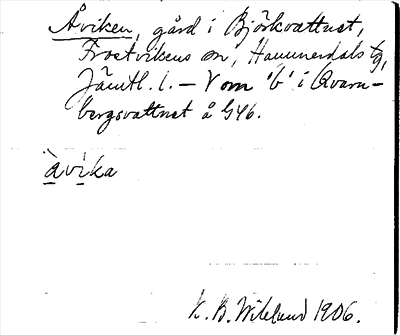 Åviken, gård i Björkvattnet,
Frostvikens sn, Hammerdals tg,
Jämtl. l. — V om 'b' i Qvarn-
bergsvattnet å G46.
àvika
K. B. Wiklund 1906.